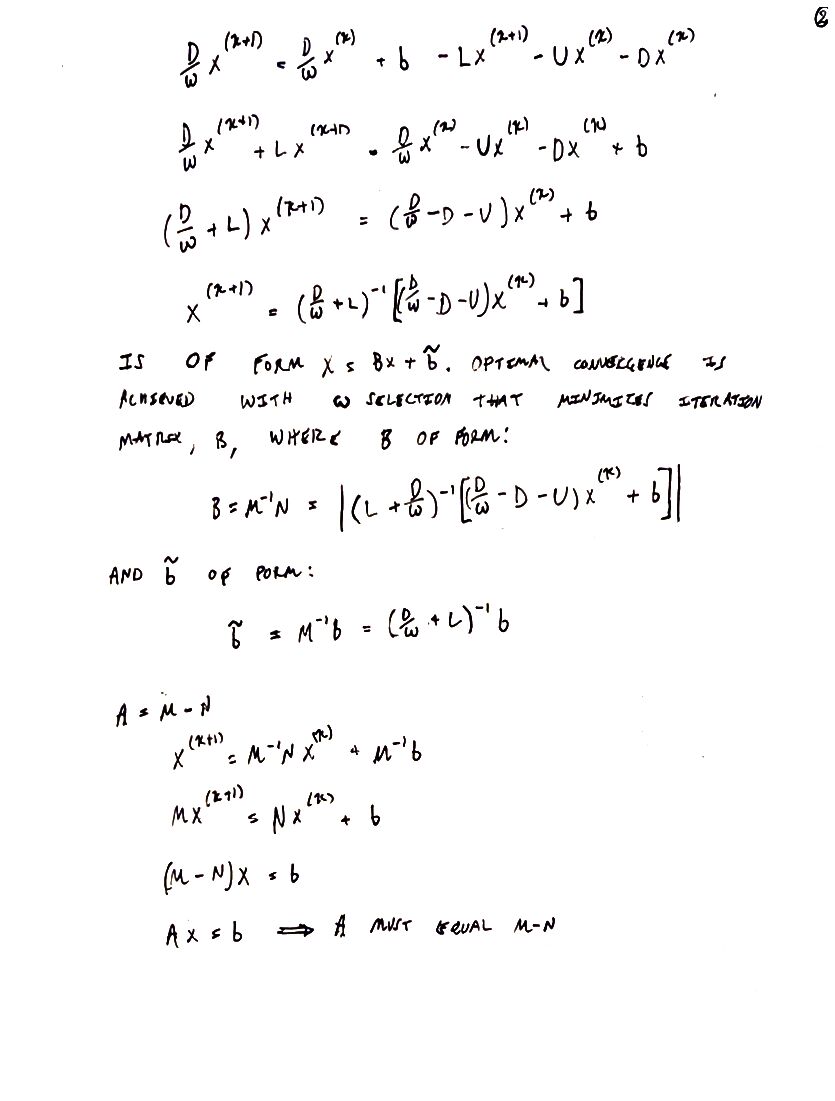 ②
D/ω x^(k+1) = D/ω x^(k) + b - Lx^(k+1) - Ux^(k) - Dx^(k)
D/ω x^(k+1) + Lx^(k+1) = D/ω x^(k) - Ux^(k) - Dx^(k) + b
(D/ω + L) x^(k+1) = (D/ω - D - U) x^(k) + b
x^(k+1) = (D/ω + L)^-1 [(D/ω - D - U) x^(k) + b]
IS OF FORM X = BX + b̃. OPTIMAL CONVERGENCE IS
ACHIEVED WITH ω SELECTION THAT MINIMIZES ITERATION
MATRIX, B, WHERE B OF FORM:
B = M^-1 N = |(L + D/ω)^-1 [(D/ω - D - U) x^(k) + b]|
AND b̃ OF FORM:
b̃ = M^-1 b = (D/ω + L)^-1 b
A = M - N
x^(k+1) = M^-1 N x^(k) + M^-1 b
Mx^(k+1) = Nx^(k) + b
(M - N)X = b
AX = b ⟹ A MUST EQUAL M-N